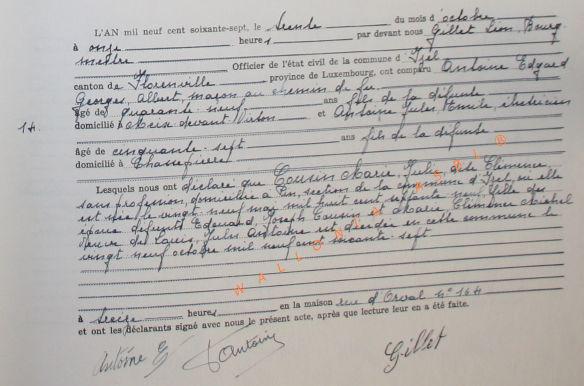 L'AN mil neuf cent soixante-sept, le trente du mois d'octobre
à onze heures par devant nous Gillet Léon, Bourg
mestre Officier de l'état civil de la commune d'Izel
canton de Florenville province de Luxembourg, ont comparu Antoine Edgard
Georges, Albert, maçon au chemin de fer
âgé de quarante-neuf ans fils de la défunte
domicilié à Meix devant Virton et Antoine Jules, Emile, électricien
14.
âgé de cinquante-sept ans fils de la défunte
domicilié à Chassepierre
Lesquels nous ont déclaré que Cousin Marie, Julie, dite Clémence
sans profession, domiciliée à Pin, section de la commune d'Izel, où elle
est née le vingt-neuf mai mil huit cent septante-neuf, fille des
époux défunts Edouard Joseph Cousin et Marie
veuve de Louis, Jules Antoine est décédée en cette commune le
vingt neuf octobre mil neuf cent soixante-sept
à treize heures en la maison rue d'Orval n° 144
et ont les déclarants signé avec nous le présent acte, après que lecture leur en a été faite.
Antoine E Antoine Gillet